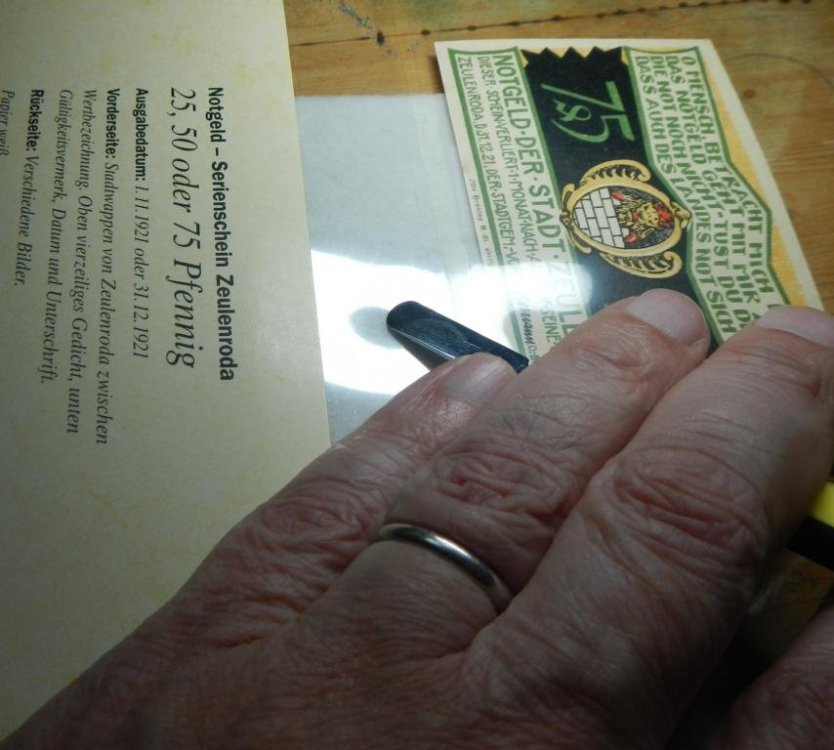 Notgeld – Serienschein Zeulenroda
25, 50 oder 75 Pfennig
Ausgabedatum: 1.11.1921 oder 31.12.1921
Vorderseite: Stadtwappen von Zeulenroda zwischen
Wertbezeichnung. Oben vierzeiliges Gedicht, unten
Gültigkeitsvermerk, Datum und Unterschrift.
Rückseite: Verschiedene Bilder.
Papier weiß
O MENSCH, BETRACHT MICH
DAS NOTGELD GEHT MIT MIR
DIE NOT NOCH NICHT · TUST DU
DASS AUCH DES LANDES NOT SICH
75
NOTGELD · DER · STADT · ZEULE
DIESER · SCHEIN · VERLIERT · 1 · MONAT · NACH
ZEULENRODA, D. 31.12.21, DER STADTGEM. V